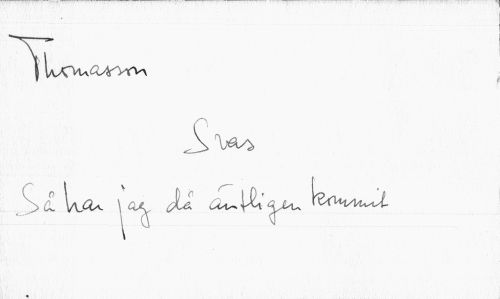 Thomasson
Svas
Så har jag då äntligen kommit